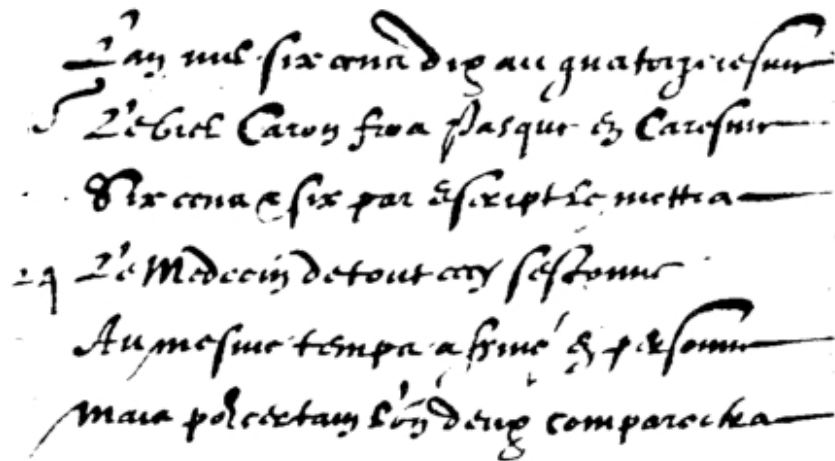 L'an mil six cens dix au quatorziesme
Le viel Caron fera Pasque en Caresme
Six cens & six par escript le mettra
Le Medecin de tout cecy sestonne
Au mesme temps assiné en personne
Mais pour certain l'un deux comparoitra